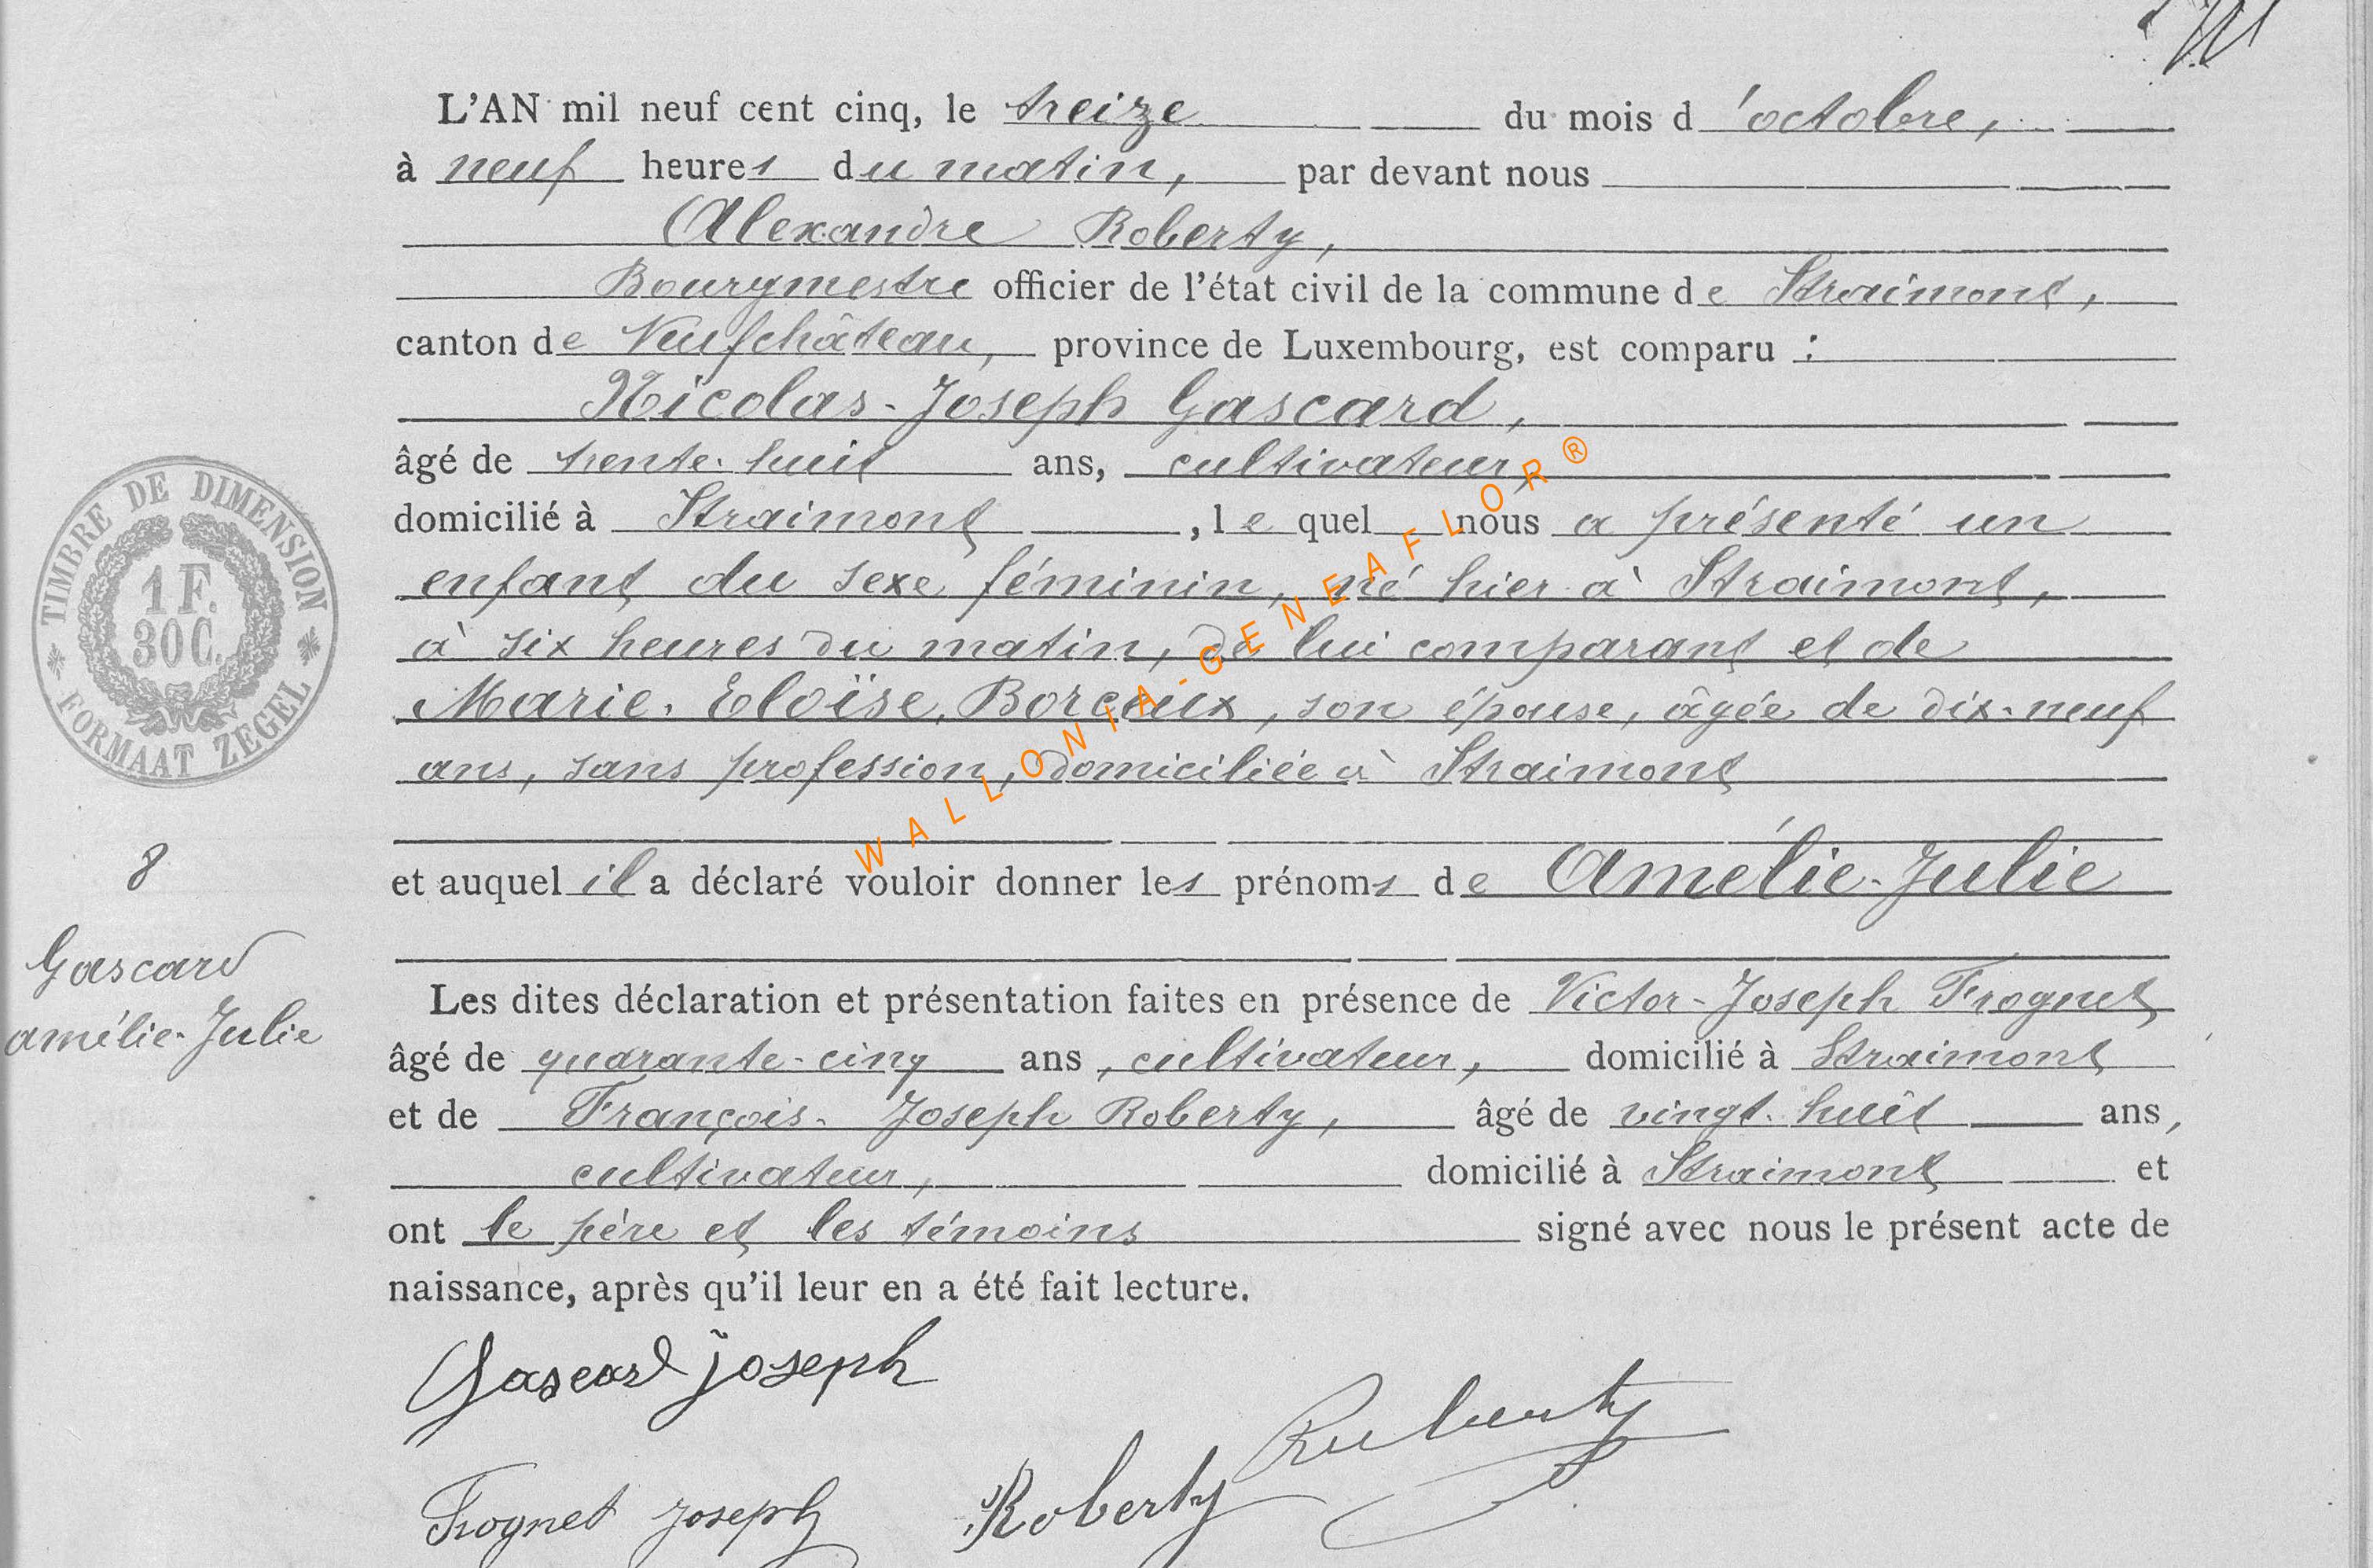 L'AN mil neuf cent cinq, le treize du mois d'octobre,
à neuf heures du matin, par devant nous
Alexandre Roberty,
Bourgmestre officier de l'état civil de la commune de Straimont,
canton de Neufchâteau, province de Luxembourg, est comparu :
Nicolas-Joseph Gascard,
âgé de trente-huit ans, cultivateur,
domicilié à Straimont, lequel nous a présenté un
enfant du sexe féminin, né hier à Straimont,
à six heures du matin, de lui comparant et de
Marie-Eloïse Borceux, son épouse, âgée de dix-neuf
ans, sans profession, domiciliée à Straimont
et auquel il a déclaré vouloir donner les prénoms de Amélie-Julie
Les dites déclaration et présentation faites en présence de Victor-Joseph Frognet
âgé de quarante-cinq ans, cultivateur, domicilié à Straimont
et de François-Joseph Roberty, âgé de vingt-huit ans,
cultivateur, domicilié à Straimont et
ont le père et les témoins signé avec nous le présent acte de
naissance, après qu'il leur en a été fait lecture.
Gascard joseph
Roberty
Frognet joseph Roberty
TIMBRE DE DIMENSION
1 F.
30 C.
FORMAAT ZEGEL
8
Gascard
amélie-Julie
WALLONIA-GENEAFLOR®